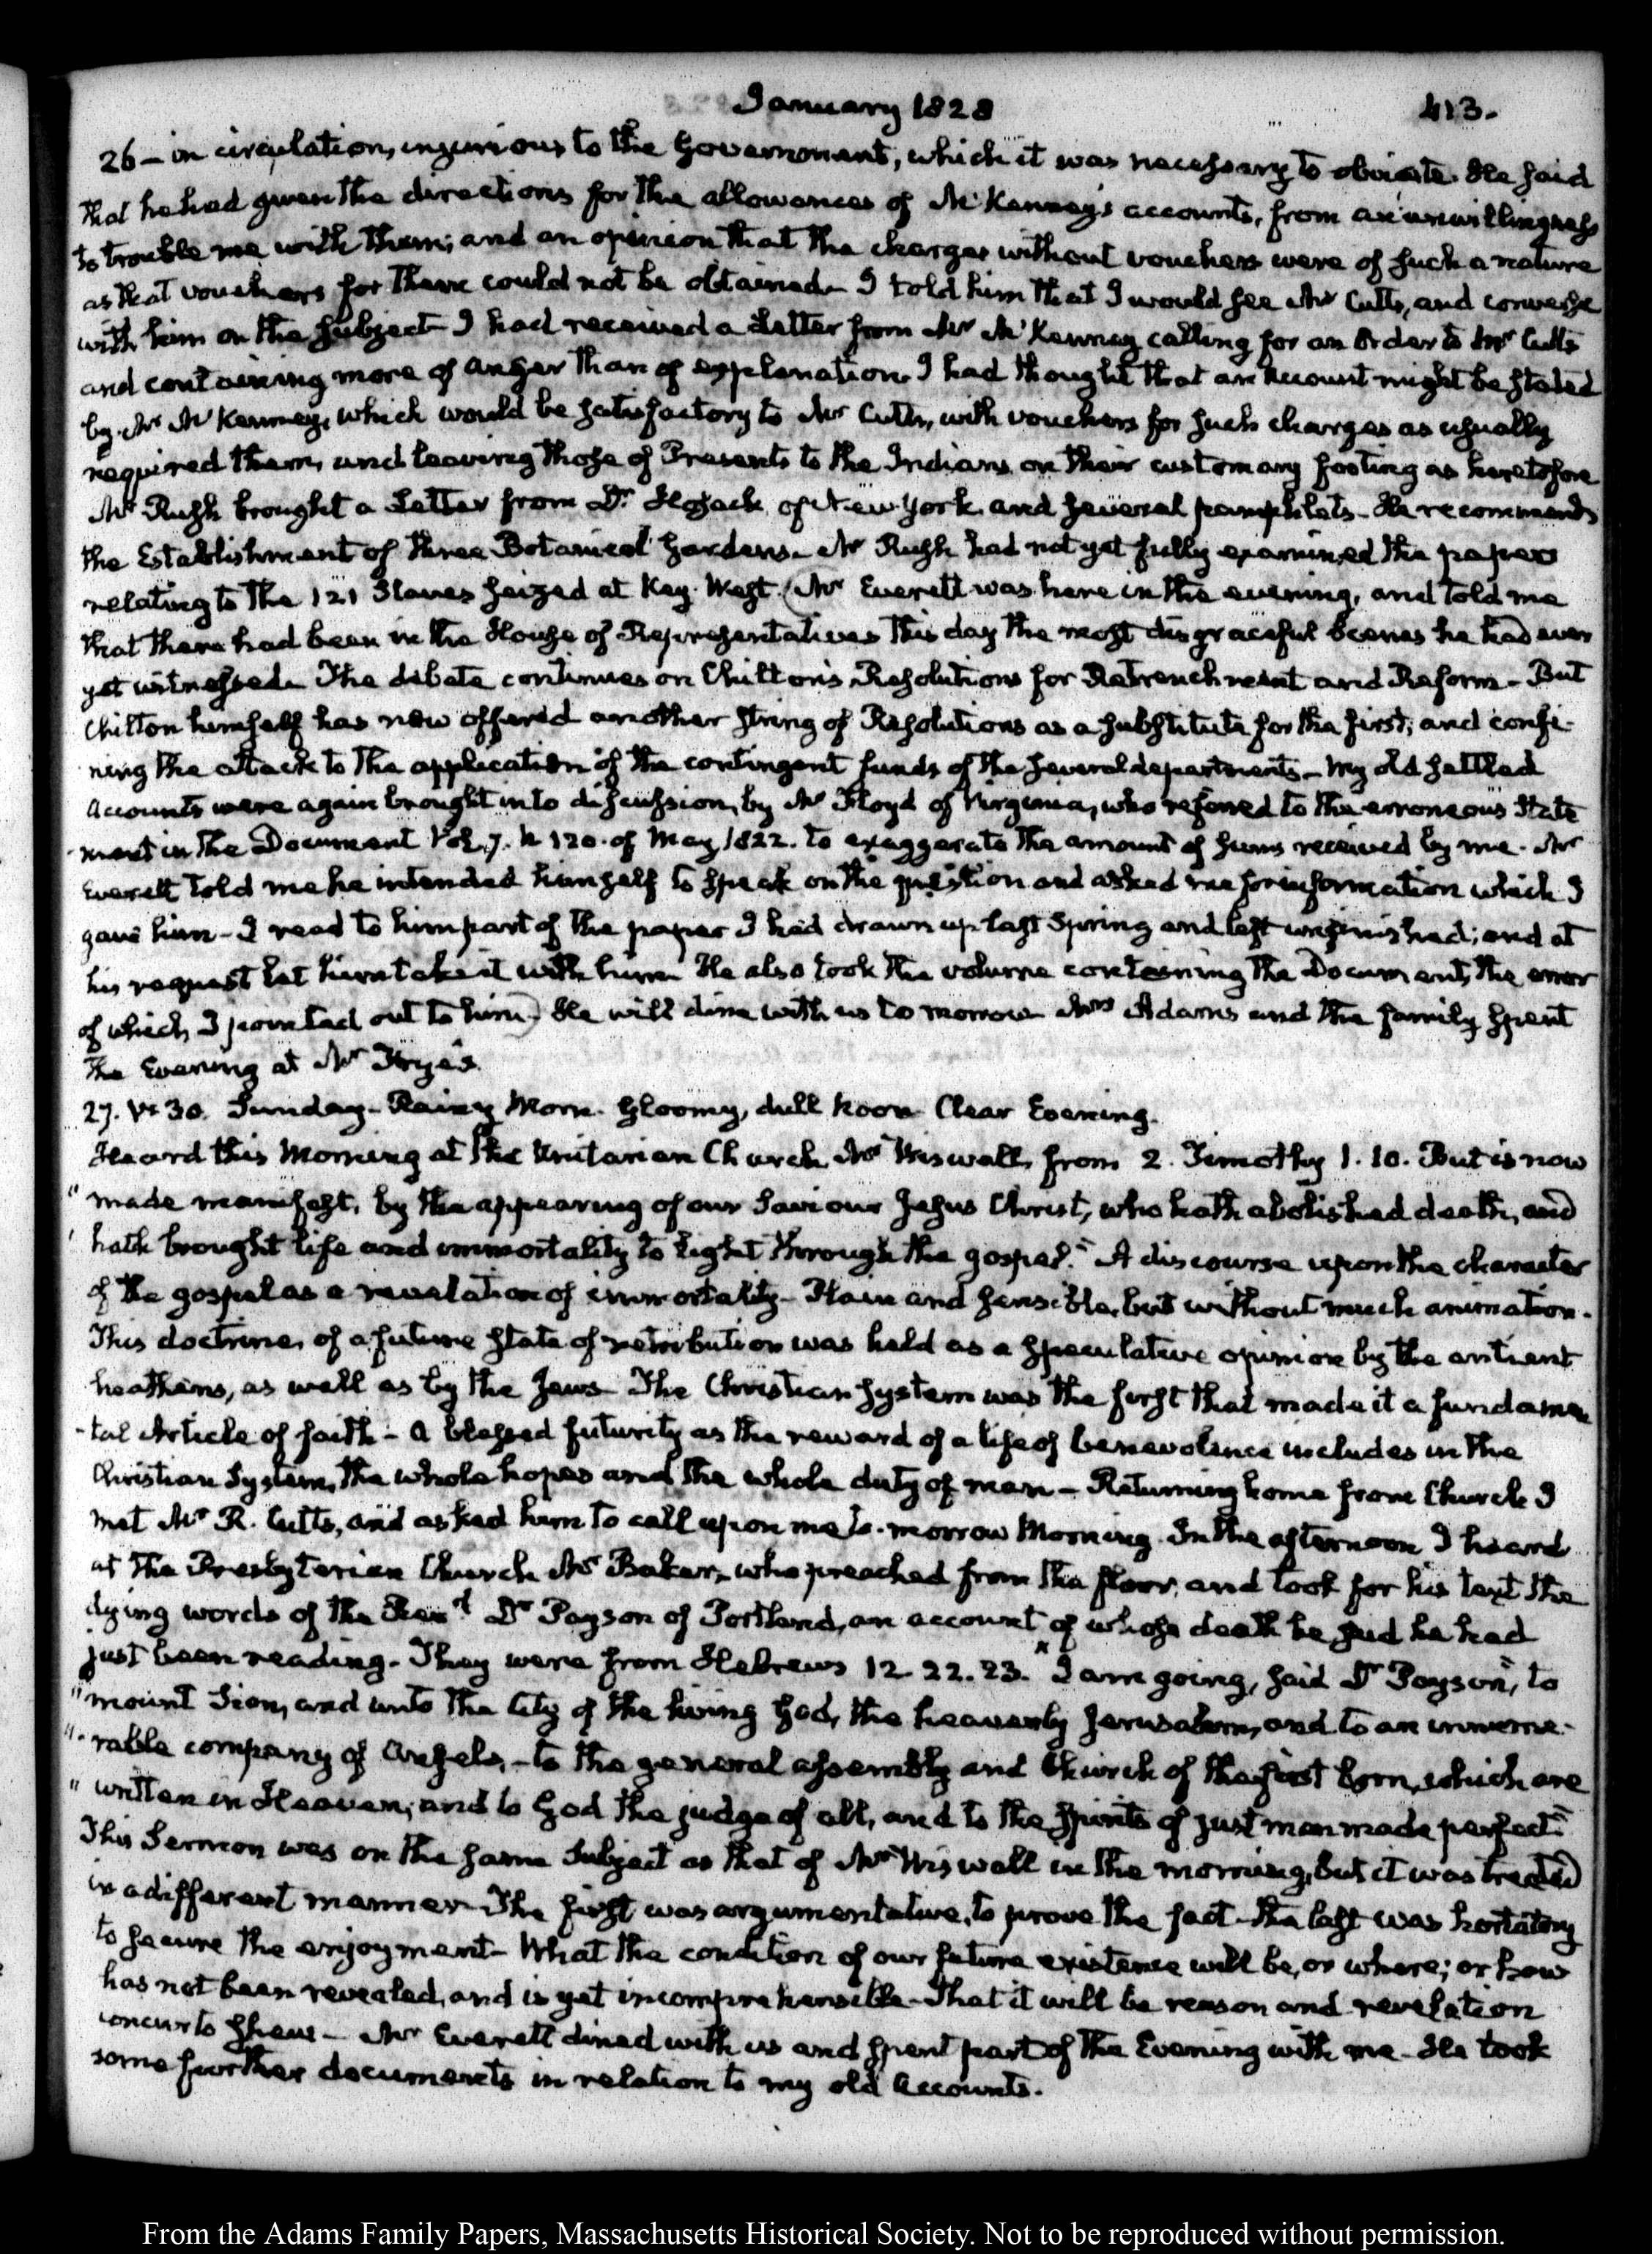 January 1828
413.
26 — in circulation, injurious to the Government, which it was necessary to obviate. He said
that he had given the directions for the allowances of McKenney's accounts, from an unwillingness
to trouble me with them; and an opinion that the charges without vouchers were of such a nature
as that vouchers for them could not be obtained. I told him that I would see Mr Cutts, and converse
with him on the subject. I had received a Letter from Mr McKenney calling for an Order to Mr Cutts
and containing more of anger than of explanation. I had thought that an Account might be stated
by Mr McKenney, which would be satisfactory to Mr Cutts, with vouchers for such charges as usually
required them, and leaving those of Presents to the Indians, on their customary footing as heretofore
Mr Rush brought a Letter from Dr Hosack of New York and several pamphlets. He recommends
the Establishment of three Botanical Gardens. Mr Rush had not yet fully examined the papers
relating to the 121 Slaves seized at Key-West. (Mr Everett was here in the evening, and told me
that there had been in the House of Representatives this day the most disgraceful scenes he had ever
yet witnessed. The debate continues on Chilton's Resolutions for Retrenchment and Reform. But
Chilton himself has now offered another string of Resolutions as a substitute for the first; and confi-
ning the attack to the application of the contingent funds of the several departments. My old settled
Accounts were again brought into discussion, by Mr Floyd of Virginia, who referred to the erroneous State
ment in the Document Vol. 7. N 120. of May 1822. to exaggerate the amount of sums received by me. Mr
Everett told me he intended himself to speak on the question and asked me for information which I
gave him — I read to him part of the paper I had drawn up last Spring and left unfinished; and at
his request let him take it with him. He also took the volume containing the Document, the error
of which, I pointed out to him.) He will dine with us to morrow. Mrs Adams and the family spent
the Evening at Mr Frye's.
27. V. 30. Sunday. Rainy Morn. Gloomy, dull Noon. Clear Evening.
Heard this Morning at the Unitarian Church Mr Wiswall, from 2. Timothy 1. 10. But is now
" made manifest, by the appearing of our Saviour Jesus Christ, who hath abolished death, and
" hath brought life and immortality to light through the gospel." A discourse upon the character
of the gospel as a revelation of immortality. Plain and sensible, but without much animation.
This doctrine, of a future state of retribution was held as a speculative opinion by the antient
heathens, as well as by the Jews. The Christian System was the first that made it a fundamen
-tal Article of faith — A blessed futurity as the reward of a life of benevolence includes in the
Christian System, the whole hopes and the whole duty of man — Returning home from Church I
met Mr R. Cutts, and asked him to call upon me to-morrow Morning. In the afternoon I heard
at the Presbyterian Church Mr Baker, who preached from the floor, and took for his text the
dying words of the Revd Dr Payson of Portland, an account of whose death he said he had
just been reading. They were from Hebrews 12. 22. 23. "I am going, said Dr Payson", to
" mount Sion, and unto the City of the living God, the heavenly Jerusalem, and to an innume-
"-rable company of Angels, — to the general assembly and Church of the first born, which are
" written in Heaven, and to God the judge of all, and to the Spirits of just men made perfect."
This Sermon was on the same Subject as that of Mr Wiswall in the morning, but it was treated
in a different manner. The first was argumentative, to prove the fact — the last was hortatory
to secure the enjoyment. What the condition of our future existence will be, or where; or how
has not been revealed, and is yet incomprehensible. That it will be reason and revelation
concur to shew — Mr Everett dined with us and spent part of the Evening with me. He took
some further documents in relation to my old Accounts.
From the Adams Family Papers, Massachusetts Historical Society. Not to be reproduced without permission.